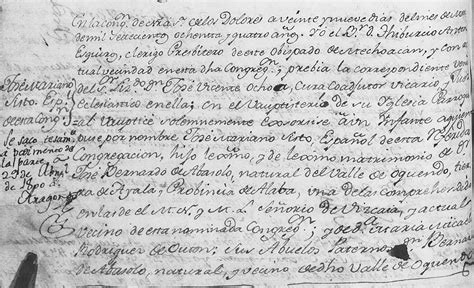 En la Cong.n de Ntra S.ra de los Dolores a veinte y nueve dias del mes de
de mil setecientos, ochenta, y quatro años. Yo el B.r D.n Thiburcio Anto
Esquiro, clerigo Presbitero de este Obispado de Mechoacan, y con
tual vecindad en esta dha Congreg.n; prebia la correspondiente
del S. D.n Jph Vicente Ochoa, Cura Coadjutor Vicario,
Eclesiastico en ella; en el Vauptisterio de su Yglesia
Vauptice solemnemente Exsorsise à un Infante aquien
puse por nombre Jph Mariano Anto Español de esta
Congregacion, hijo lexmo, y de lexmo matrimonio de
Jph Bernardo de Abasolo, natural del Valle de Oquendo, tie
rra de Ayala, Probinia de Alaba, una de las comprehendid
en las de el M. N. y M. L. Señorio de Vizcaia, y actual
vecino de esta nominada Congreg.n y de D.a Maria Micaela
Rodriguez de Outon: sus Abuelos Paternos D.n Bernar
de Abasolo, natural, y vecino de dho Valle de Oquendo
Jph Mariano
Anto. Esp.l
de esta Cong.n
Se saco testim.
â pedimento de
la parte à
29 de
de 1800
Aragon